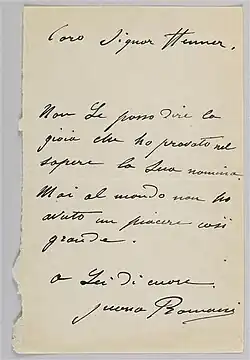 Caro Signor Henner,
Non Le posso dire la
gioia che ho provato nel
sapere la Sua nomina
Mai al mondo non ho
avuto un piacere così
grande.
a Lei di cuore.
Juana Romani